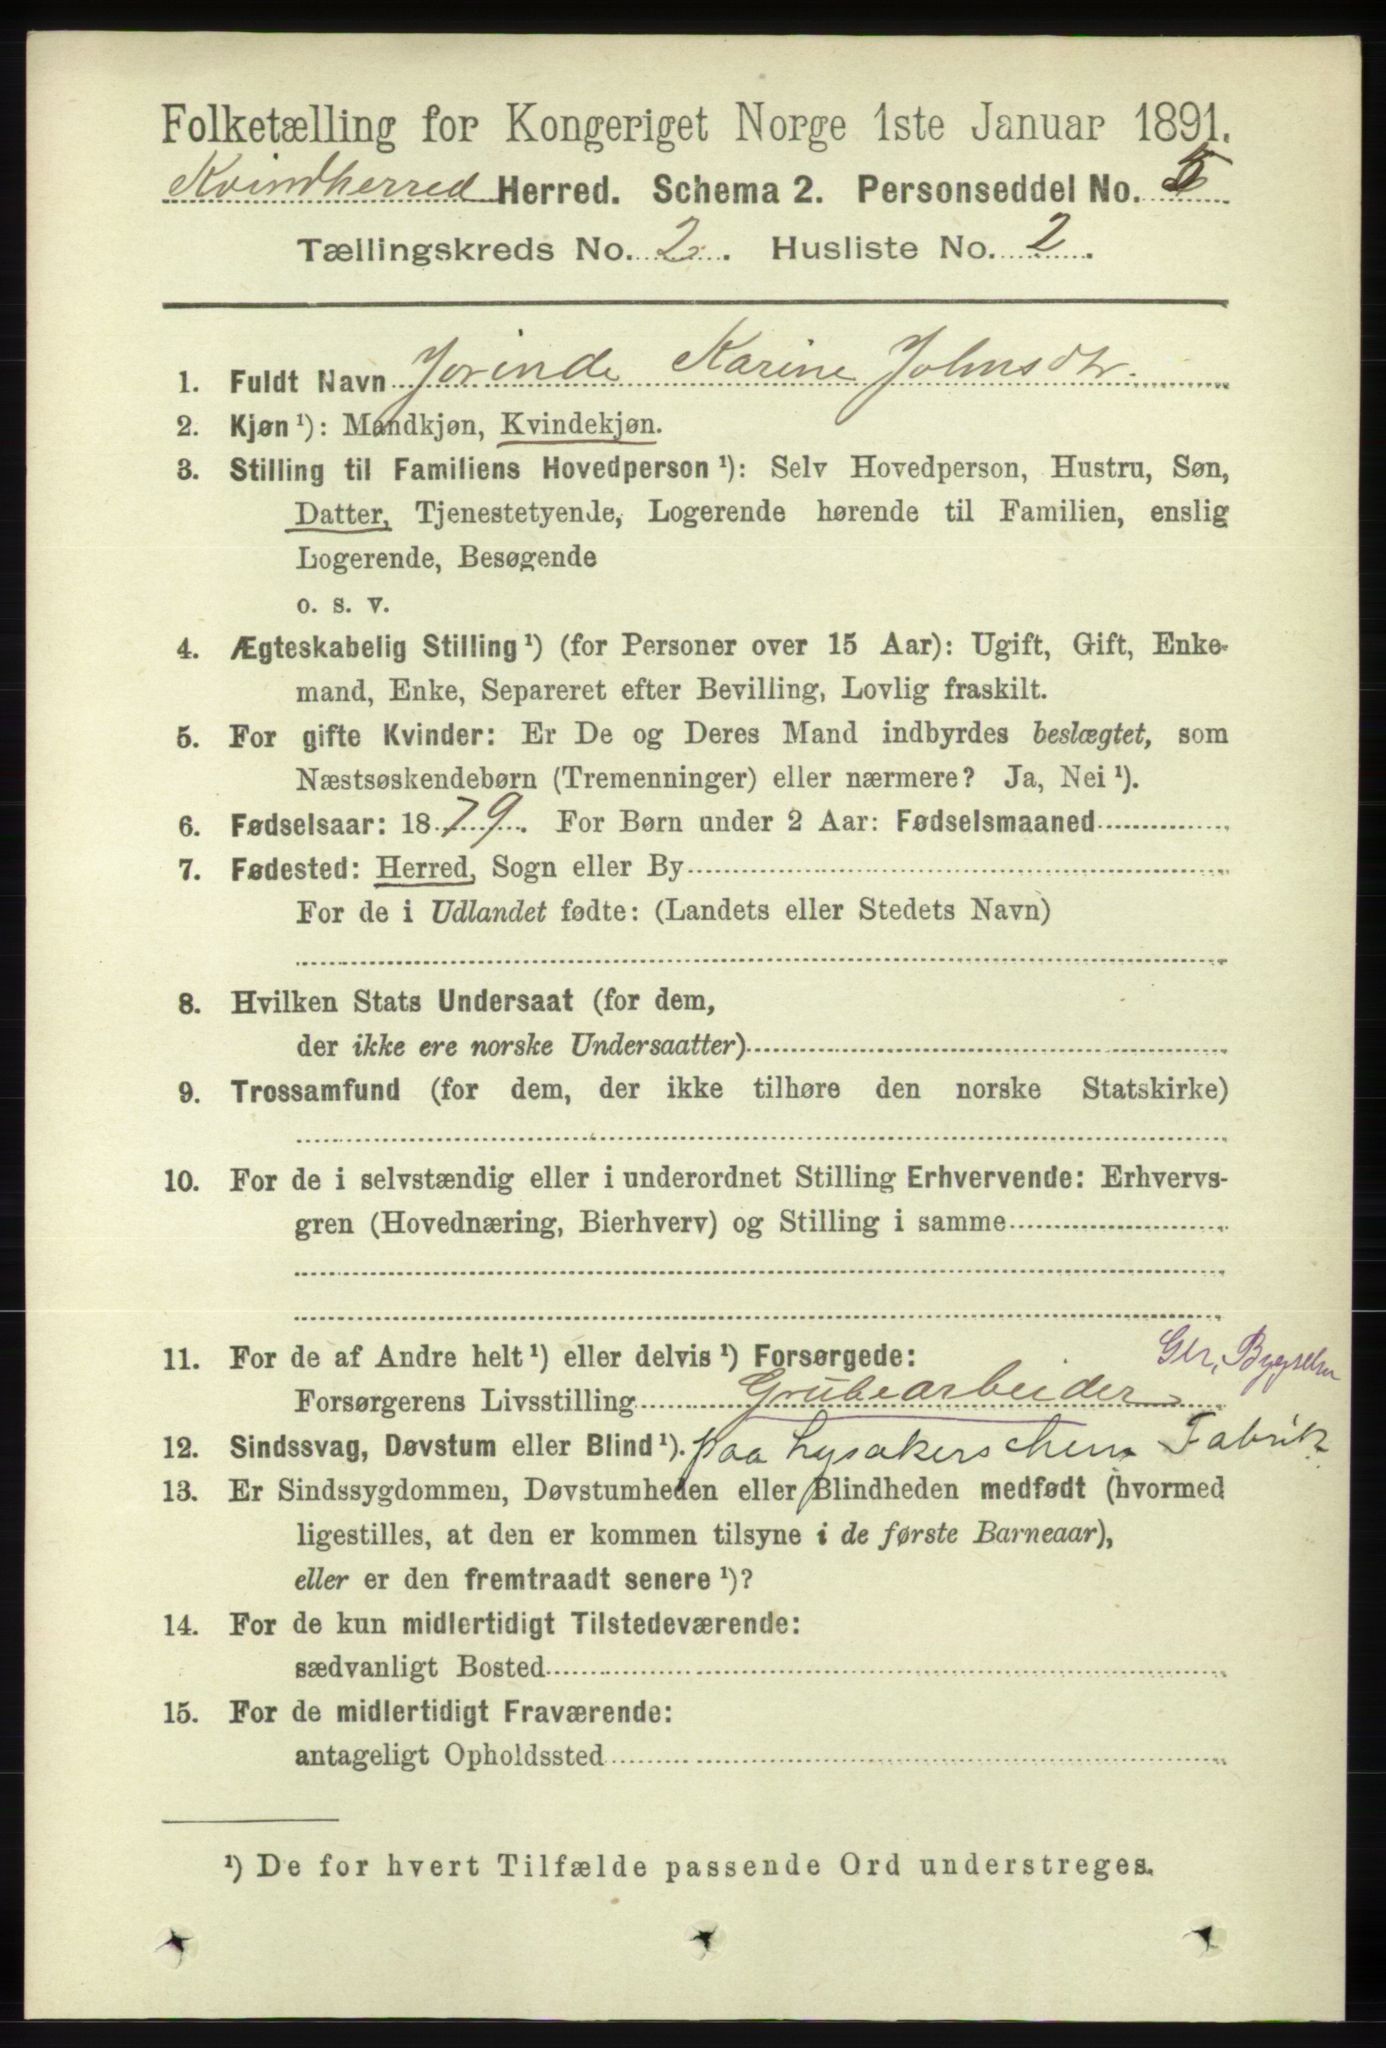 Folketælling for Kongeriget Norge 1ste Januar 1891.
Kvindherred Herred. Schema 2. Personseddel No. 5
Tællingskreds No. 2. Husliste No. 2.
1. Fuldt Navn Jorinde Karine Johnsdtr.
2. Kjøn ¹): Mandkjøn, Kvindekjøn.
3. Stilling til Familiens Hovedperson ¹): Selv Hovedperson, Hustru, Søn,
Datter, Tjenestetyende, Logerende hørende til Familien, enslig
Logerende, Besøgende
o. s. v.
4. Ægteskabelig Stilling ¹) (for Personer over 15 Aar): Ugift, Gift, Enke-
mand, Enke, Separeret efter Bevilling, Lovlig fraskilt.
5. For gifte Kvinder: Er De og Deres Mand indbyrdes beslægtet, som
Næstsøskendebørn (Tremenninger) eller nærmere? Ja, Nei ¹).
6. Fødselsaar: 1879. For Børn under 2 Aar: Fødselsmaaned
7. Fødested: Herred, Sogn eller By
For de i Udlandet fødte: (Landets eller Stedets Navn)
8. Hvilken Stats Undersaat (for dem,
der ikke ere norske Undersaatter)
9. Trossamfund (for dem, der ikke tilhøre den norske Statskirke)
10. For de i selvstændig eller i underordnet Stilling Erhvervende: Erhvervs-
gren (Hovednæring, Bierhverv) og Stilling i samme
Glr, Bygselm
11. For de af Andre helt ¹) eller delvis ¹) Forsørgede:
Forsørgerens Livsstilling Grubearbeider
12. Sindssvag, Døvstum eller Blind ¹). paa Lysakers chem Fabrik
13. Er Sindssygdommen, Døvstumheden eller Blindheden medfødt (hvormed
ligestilles, at den er kommen tilsyne i de første Barneaar),
eller er den fremtraadt senere ¹)?
14. For de kun midlertidigt Tilstedeværende:
sædvanligt Bosted
15. For de midlertidigt Fraværende:
antageligt Opholdssted
¹) De for hvert Tilfælde passende Ord understreges.